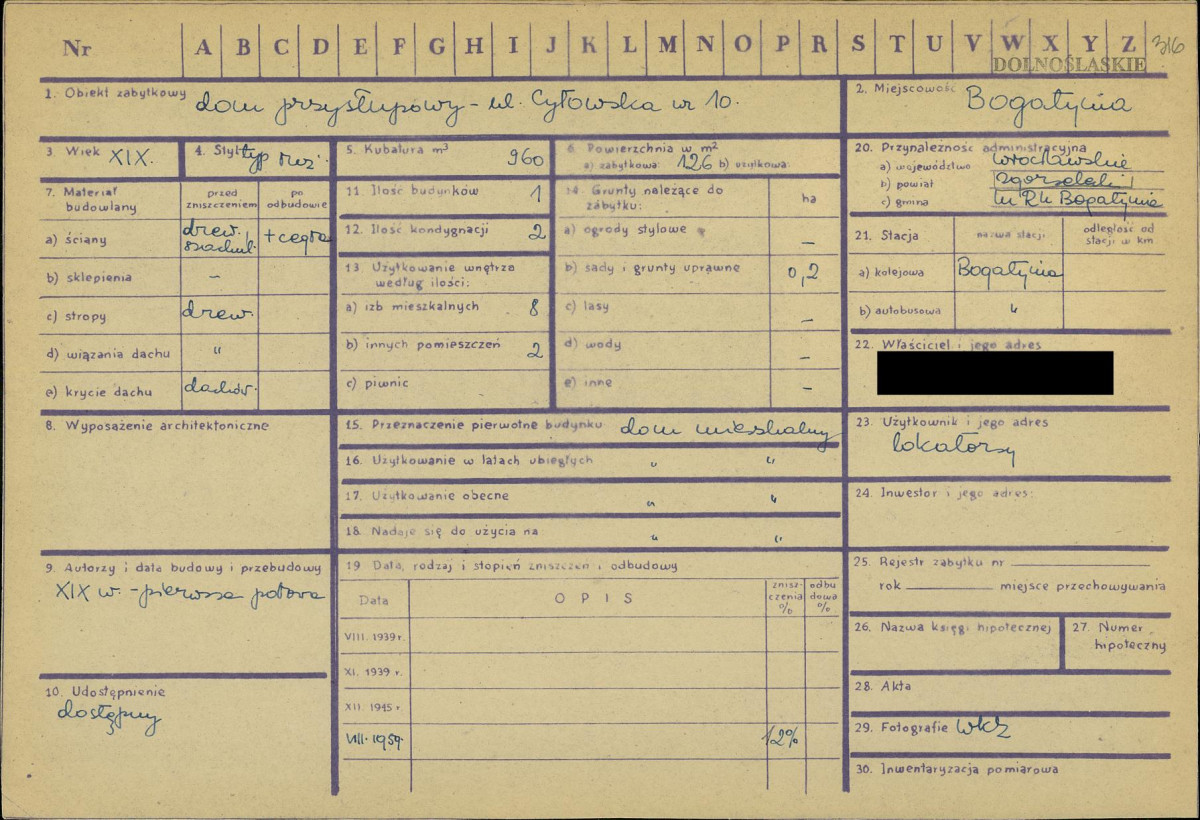 Nr A B C D E F G H I J K L M N O P R S T U V W X Y Z 316
DOLNOŚLĄSKIE
1. Obiekt zabytkowy dom przysłupowy - ul. Cytowska nr 10.
2. Miejscowość Bogatynia
3. Wiek XIX.
4. Styl typ
5. Kubatura m³ 960
6. Powierzchnia w m²
a) zabytkowa: 126 b) użytkowa:
20. Przynależność administracyjna
a) województwo wrocławskie
b) powiat zgorzelecki
c) gmina Bogatynia
7. Materiał budowlany
przed zniszczeniem
po odbudowie
a) ściany drew. szachul. + cegła
b) sklepienia –
c) stropy drew.
d) wiązania dachu "
e) krycie dachu dachów.
11. Ilość budynków 1
12. Ilość kondygnacji 2
13 Użytkowanie wnętrza
według ilości:
a) izb mieszkalnych 8
b) innych pomieszczeń 2
c) piwnic
14. Grunty należące do
zabytku: ha
a) ogrody stylowe –
b) sady i grunty uprawne 0,2
c) lasy –
d) wody –
e) inne –
21. Stacja
nazwa stacji
odległość od
stacji w km
a) kolejowa Bogatynia
b) autobusowa "
22. Właściciel i jego adres
8. Wyposażenie architektoniczne
15. Przeznaczenie pierwotne budynku dom mieszkalny
16. Użytkowanie w latach ubiegłych " "
17. Użytkowanie obecne " "
18. Nadaje się do użycia na " "
23. Użytkownik i jego adres
lokatorzy
24. Inwestor i jego adres:
9. Autorzy i data budowy i przebudowy
XIX w. - pierwsza połowa
19 Data, rodzaj i stopień zniszczeń i odbudowy
Data OPIS
znisz-
czenia
%
odbu
dowa
%
VIII. 1939 r.
XI. 1939 r.
XII. 1945 r.
VIII. 1959. 12%
25. Rejestr zabytku nr
rok miejsce przechowywania
26. Nazwa księgi hipotecznej
27. Numer
hipoteczny
10. Udostępnienie
dostępny
28. Akta
29. Fotografie WKZ
30. Inwentaryzacja pomiarowa